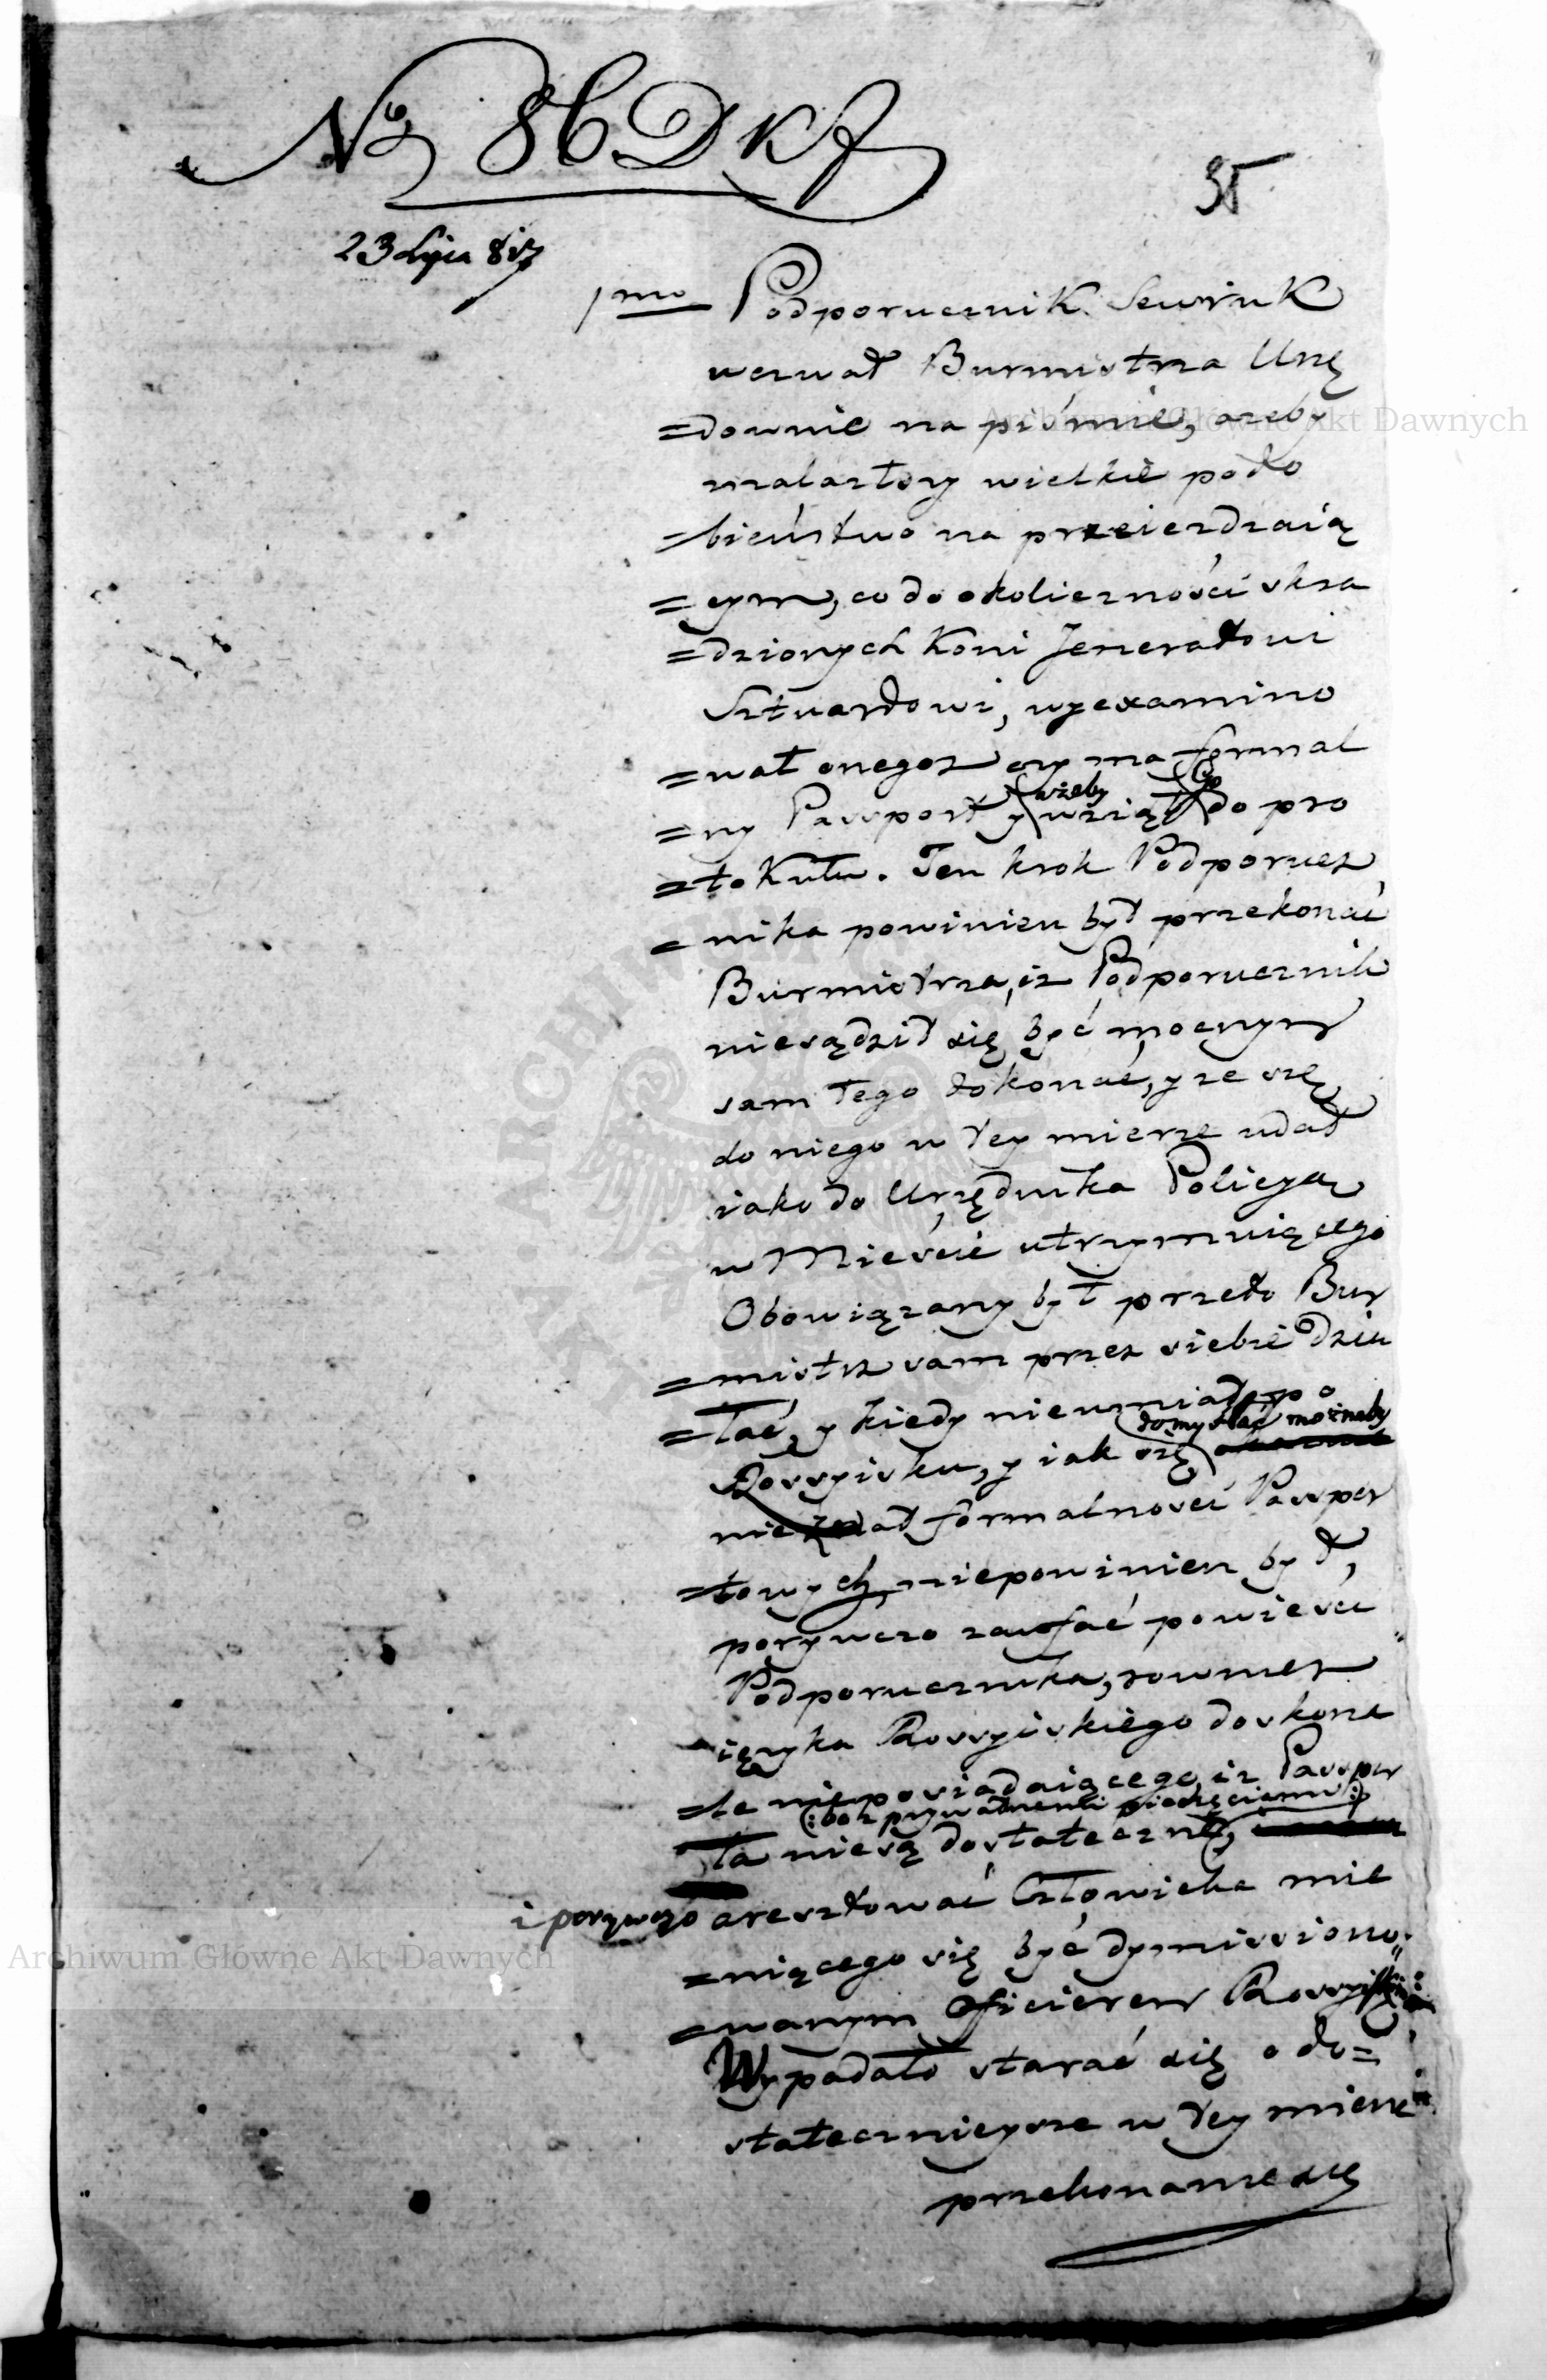 No 86 DKJ
35
23 Lipca 817
1mo Podporucznik Sewruk
wezwał Burmistrza Urzę
=downie na piśmie, ażeby
znalazłszy wielkie podo
=bieństwo na przeieżdzaią
=cym, co do okoliczności skra
=dzionych koni Jenerałowi
Sztuardowi, wyexamino
=wał onegoż czy ma formal
=ny Passport y ażeby wziął go do pro
=tokułu. Ten krok Podporucz
=nika powinien był przekonać
Burmistrza, iż Podporucznik
niesądził się być mocnym
sam tego dokonać, y że się
do niego w tey mierze udał
iako do Urzędnika Policyą
w Mieście utrzymuiącego
Obowiązany był przeto Bur
=mistrz sam przez siebie dzia
=łać, y kiedy nieumiał po
Rossyisku, y iak się domyślać możnaby
nieznał formalności Passpor
=towych, niepowinien był,
porywczo zaufać powieści
Podporucznika, rownież
ięzyka Rossyiskiego doskona
=le nieposiadaiącego, iż Passpor
ta niesą dostateczne, (:bo z prywatnemi pieczęciami:)
i porywczo aresztować Człowieka mie
=niącego się być dymissiono
=wanym Oficierem Rossyiskim
Wypadało starać się o do=
statecznieysze w tey mierze
przekonanie się
Archiwum Główne Akt Dawnych
Archiwum Główne Akt Dawnych